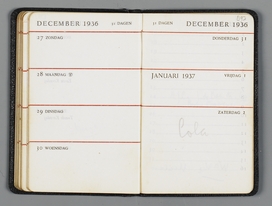 DECEMBER 1936 31 DAGEN
27 ZONDAG
28 MAANDAG
29 DINSDAG
30 WOENSDAG
31 DAGEN DECEMBER 1936
DONDERDAG 31
JANUARI 1937 VRIJDAG 1
ZATERDAG 2